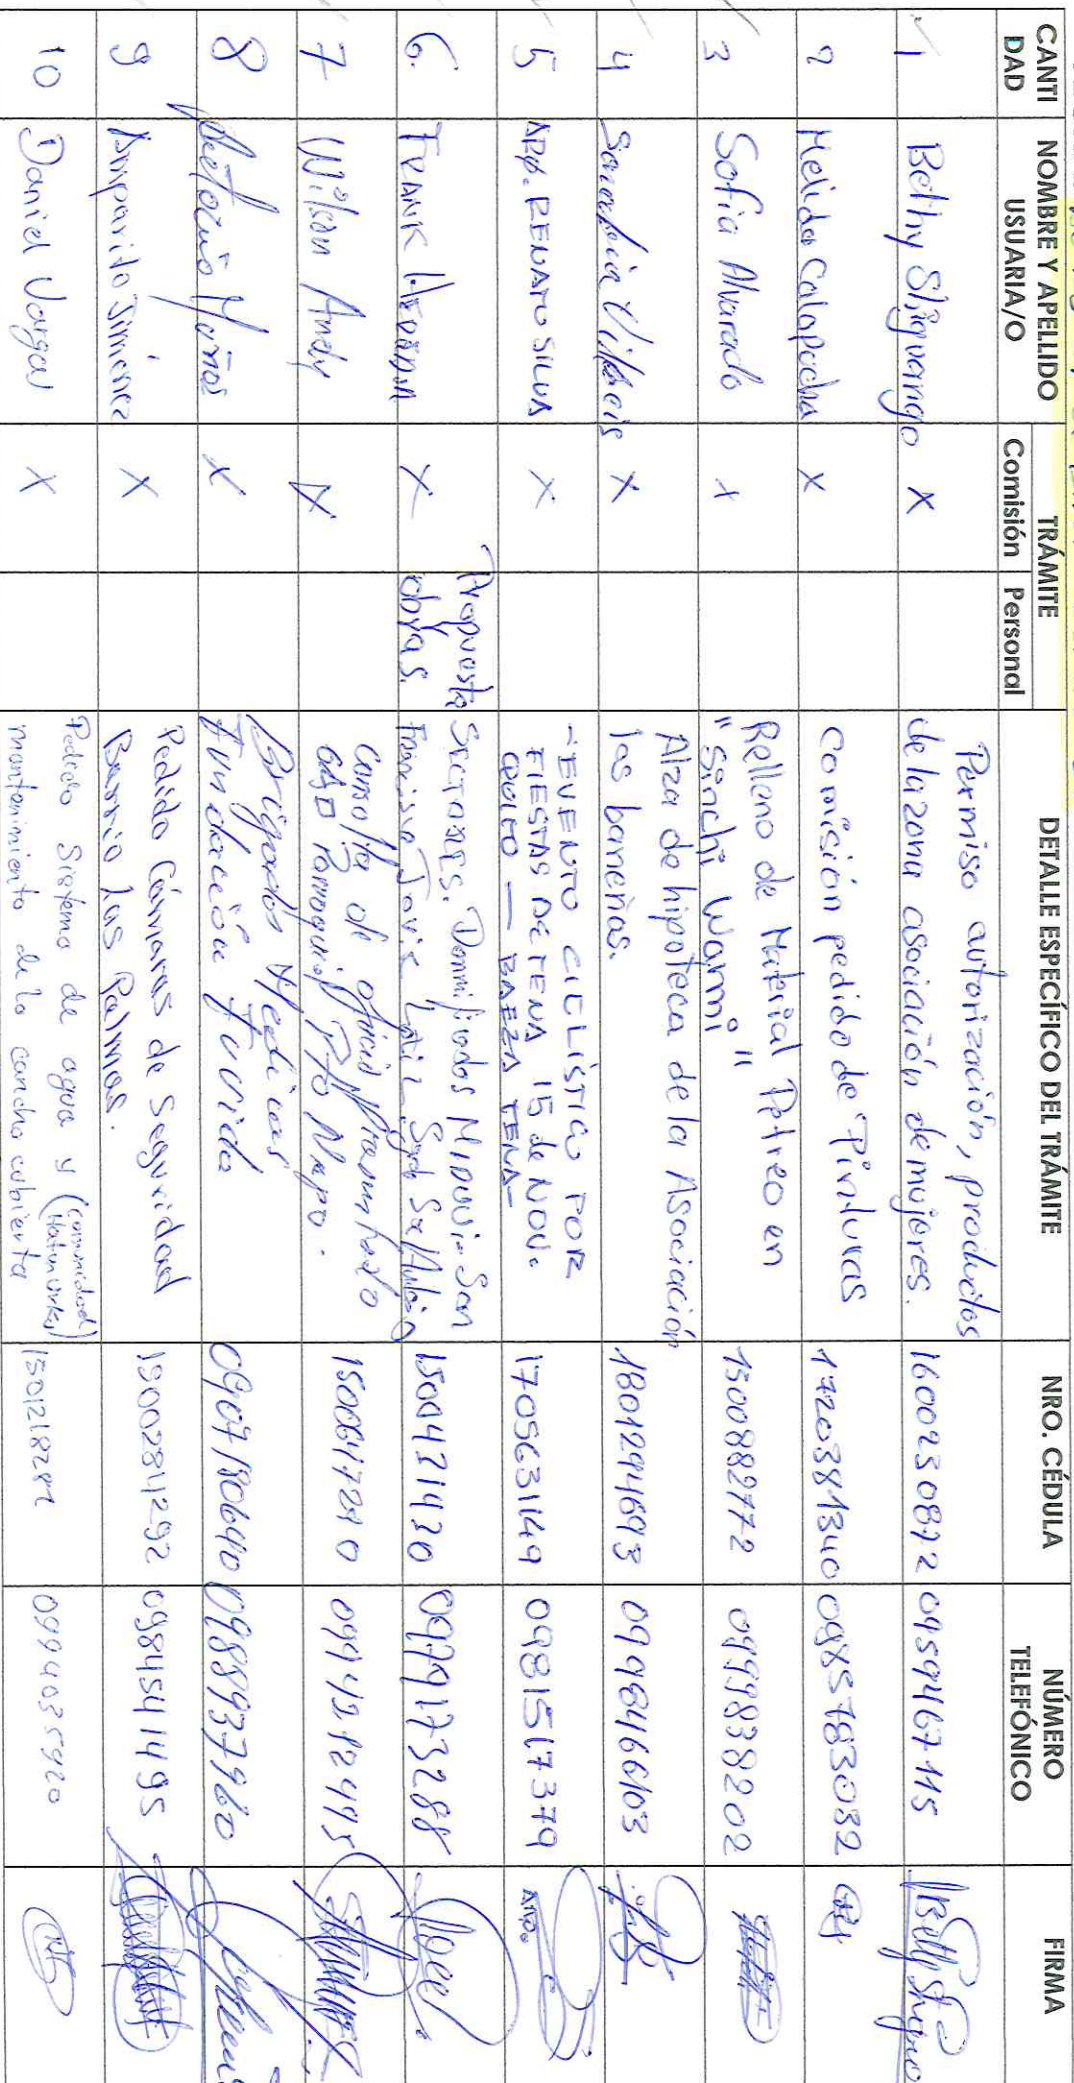 CANTI DAD | NOMBRE Y APELLIDO USUARIA/O | TRÁMITE Comisión Personal | DETALLE ESPECÍFICO DEL TRÁMITE | NRO. CÉDULA | NÚMERO TELEFÓNICO | FIRMA
1 Bethy Shiguango X Permiso autorización, productos
de la zona asociación de mujeres. 1600230872 0959467115
2 Melida Calapucha X Comisión pedido de Pinturas 1720381340 0985783032
3 Sofia Alvarado X Relleno de Material Petreo en
"Sinchi Warmi" 1500882772 0999838202
4 X Alza de hipoteca de la Asociación
las bareneñas. 1801294693 0998466103
5 ARQ. RENATO SILVA X - EVENTO CICLÍSTICO POR
FIESTAS DE TENA 15 de NOV.
QUITO — BAEZA TENA - 1705631149 0981517379
6. FRANK X Propuesta Sectores. Damnificados MIDUVI - San
obras. Francisco 1500421420 0979173288
7 Wilson Andy X Consulta de oficio
GAD Parroquial Pto Napo. 0994212495
8 X Brigadas Medicas
Fundación Tu vida 0907180640 0988937960
9 Amparito Jimenez X Pedido Cámaras de Seguridad
Barrio Las Palmas. 1500284292 0984541495
10 Daniel Vargas X Pedido Sistema de agua y (comunidad
mantenimiento de la cancha cubierta 1501218287 0994035920